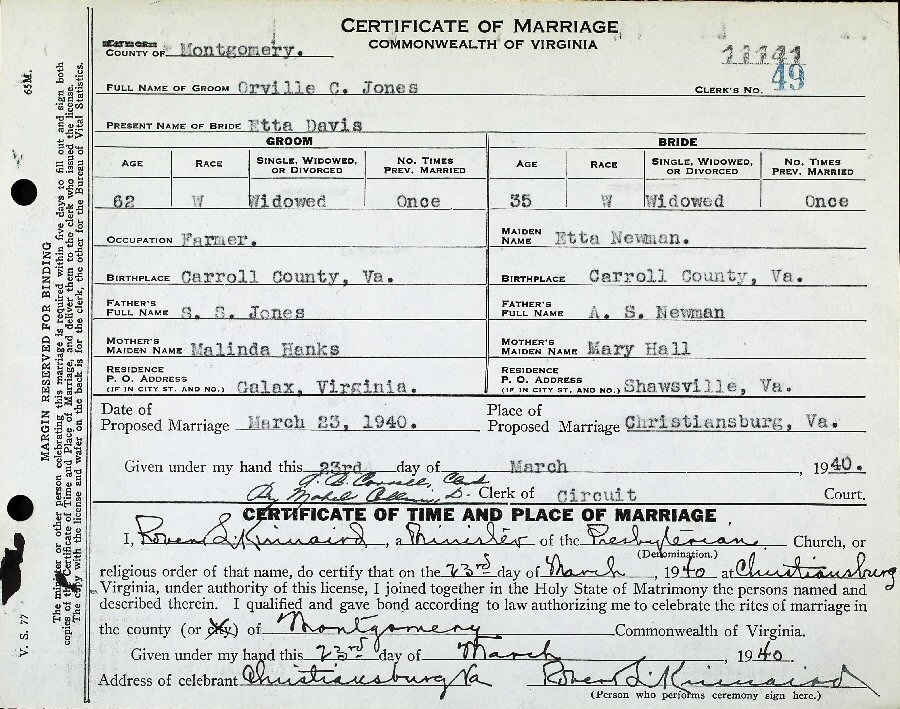 CERTIFICATE OF MARRIAGE
COMMONWEALTH OF VIRGINIA
COUNTY OF Montgomery.
11141
FULL NAME OF GROOM Orville C. Jones CLERK'S NO. 49
PRESENT NAME OF BRIDE Etta Davis
GROOM BRIDE
AGE RACE SINGLE, WIDOWED, OR DIVORCED NO. TIMES PREV. MARRIED AGE RACE SINGLE, WIDOWED, OR DIVORCED NO. TIMES PREV. MARRIED
62 W Widowed Once 35 W Widowed Once
OCCUPATION Farmer. MAIDEN NAME Etta Newman.
BIRTHPLACE Carroll County, Va. BIRTHPLACE Carroll County, Va.
FATHER'S FULL NAME S. S. Jones FATHER'S FULL NAME A. S. Newman
MOTHER'S MAIDEN NAME Malinda Hanks MOTHER'S MAIDEN NAME Mary Hall
RESIDENCE P. O. ADDRESS (IF IN CITY ST. AND NO.) Galax, Virginia. RESIDENCE P. O. ADDRESS (IF IN CITY ST. AND NO.) Shawsville, Va.
Date of Proposed Marriage March 23, 1940. Place of Proposed Marriage Christiansburg, Va.
Given under my hand this 23rd day of March, 1940.
Clerk
By Mabel D. Clerk of Circuit Court.
CERTIFICATE OF TIME AND PLACE OF MARRIAGE
I, Robert L. Kinnaird, a Minister of the Presbyterian Church, or
(Denomination.)
religious order of that name, do certify that on the 23rd day of March, 1940 at Christiansburg
Virginia, under authority of this license, I joined together in the Holy State of Matrimony the persons named and
described therein. I qualified and gave bond according to law authorizing me to celebrate the rites of marriage in
the county (or city) of Montgomery Commonwealth of Virginia.
Given under my hand this 23rd day of March 1940.
Address of celebrant Christiansburg Va Robert L. Kinnaird
(Person who performs ceremony sign here.)
65M.
MARGIN RESERVED FOR BINDING
The minister or other person celebrating this marriage is required within five days to fill out and sign both
copies of the Certificate of Time and Place of Marriage, and deliver them to the clerk who issued the license.
The copy with the license and wafer on the back is for the clerk, the other for the Bureau of Vital Statistics.
V. S. 77